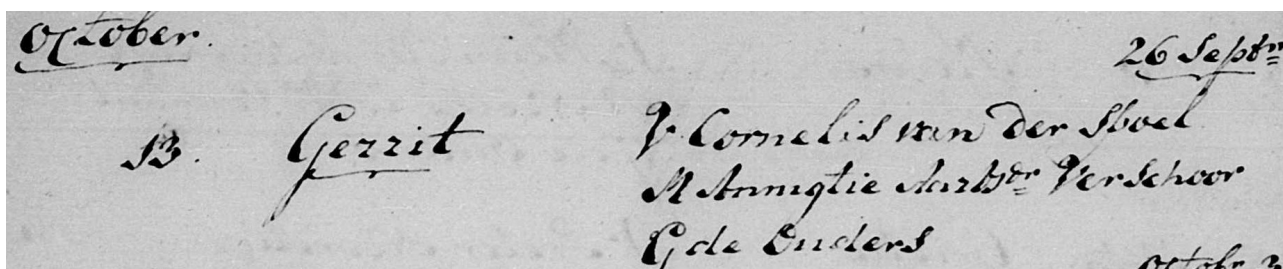 October.
26 Septr
13. Gerrit V Cornelis van der Spoel
M Annigtie Aartsdr Verschoor
G de Ouders
Octobr